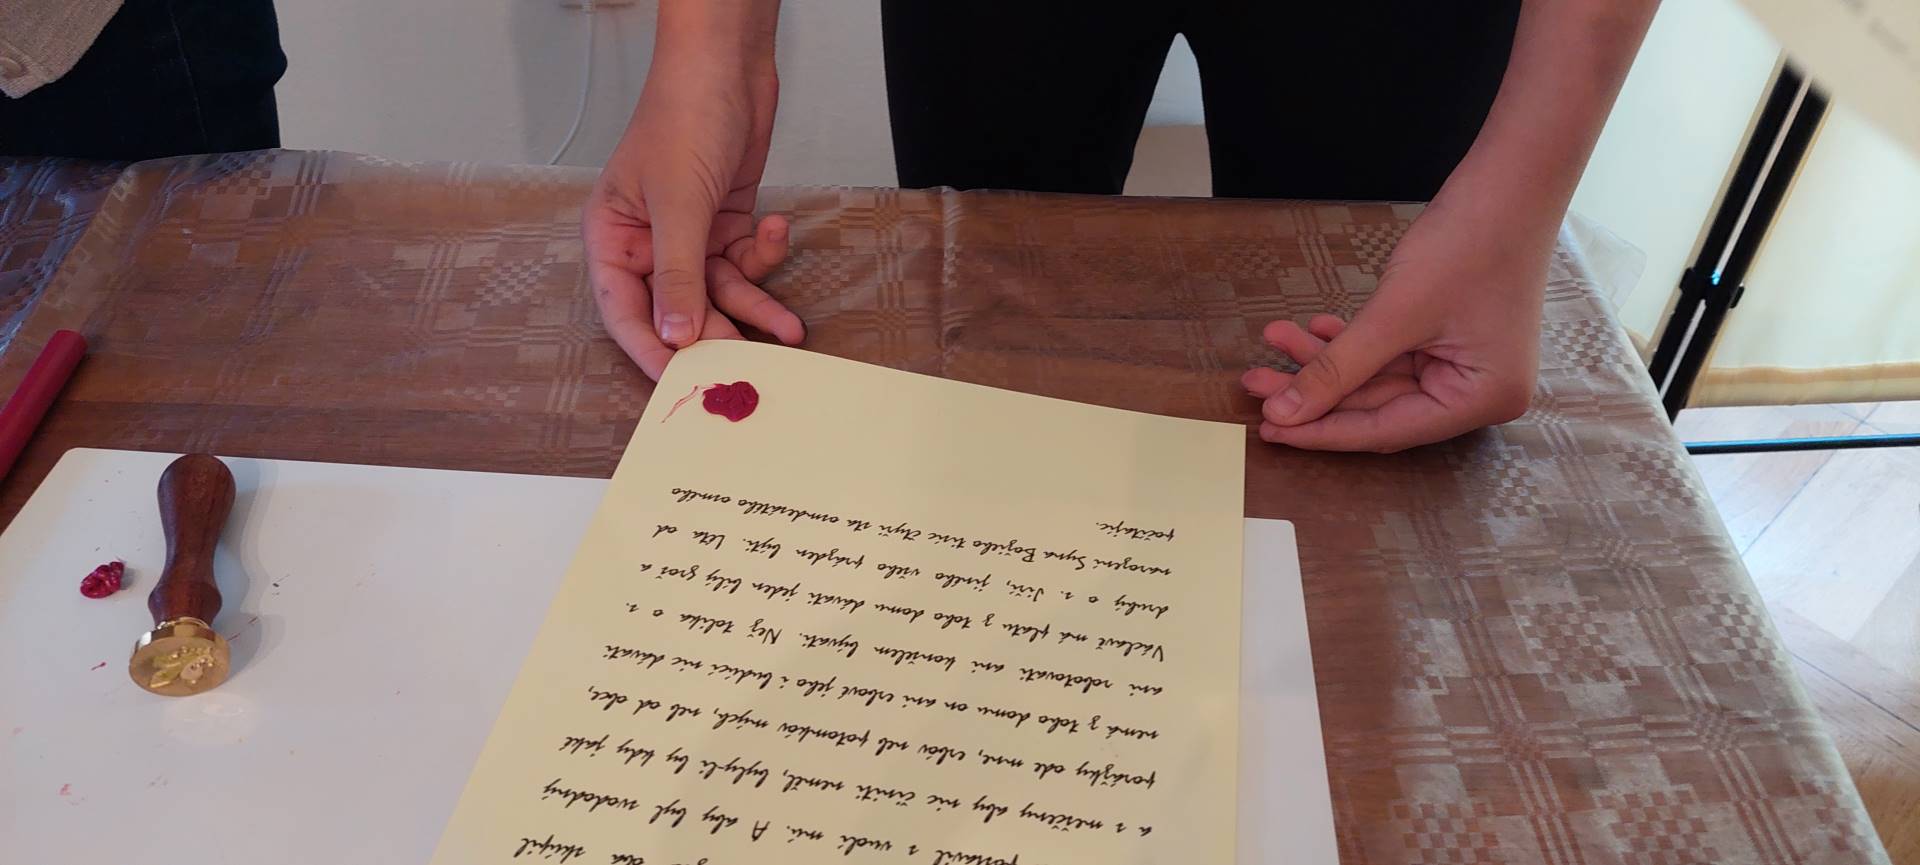 dva skúpil
postavil s vuolí mú. A aby byl svobodný
a s měščeny aby nic činiti neměl, byly-li by kdy jaké
porážky ode mne, erbóv neb potomkóv mých, neb od obce,
nemá z toho domu on ani erbové jeho i budúcí nic dávati
ani robotovati ani konšelem bývati. Než toliko o s.
Václavě má platu z toho domu dávati jeden bílý groš a
druhý o s. Jiří, jiného všeho prázden býti. Léta od
narození Syna Božieho tisíc čtyři sta osmdesátého osmého
počítajíc.